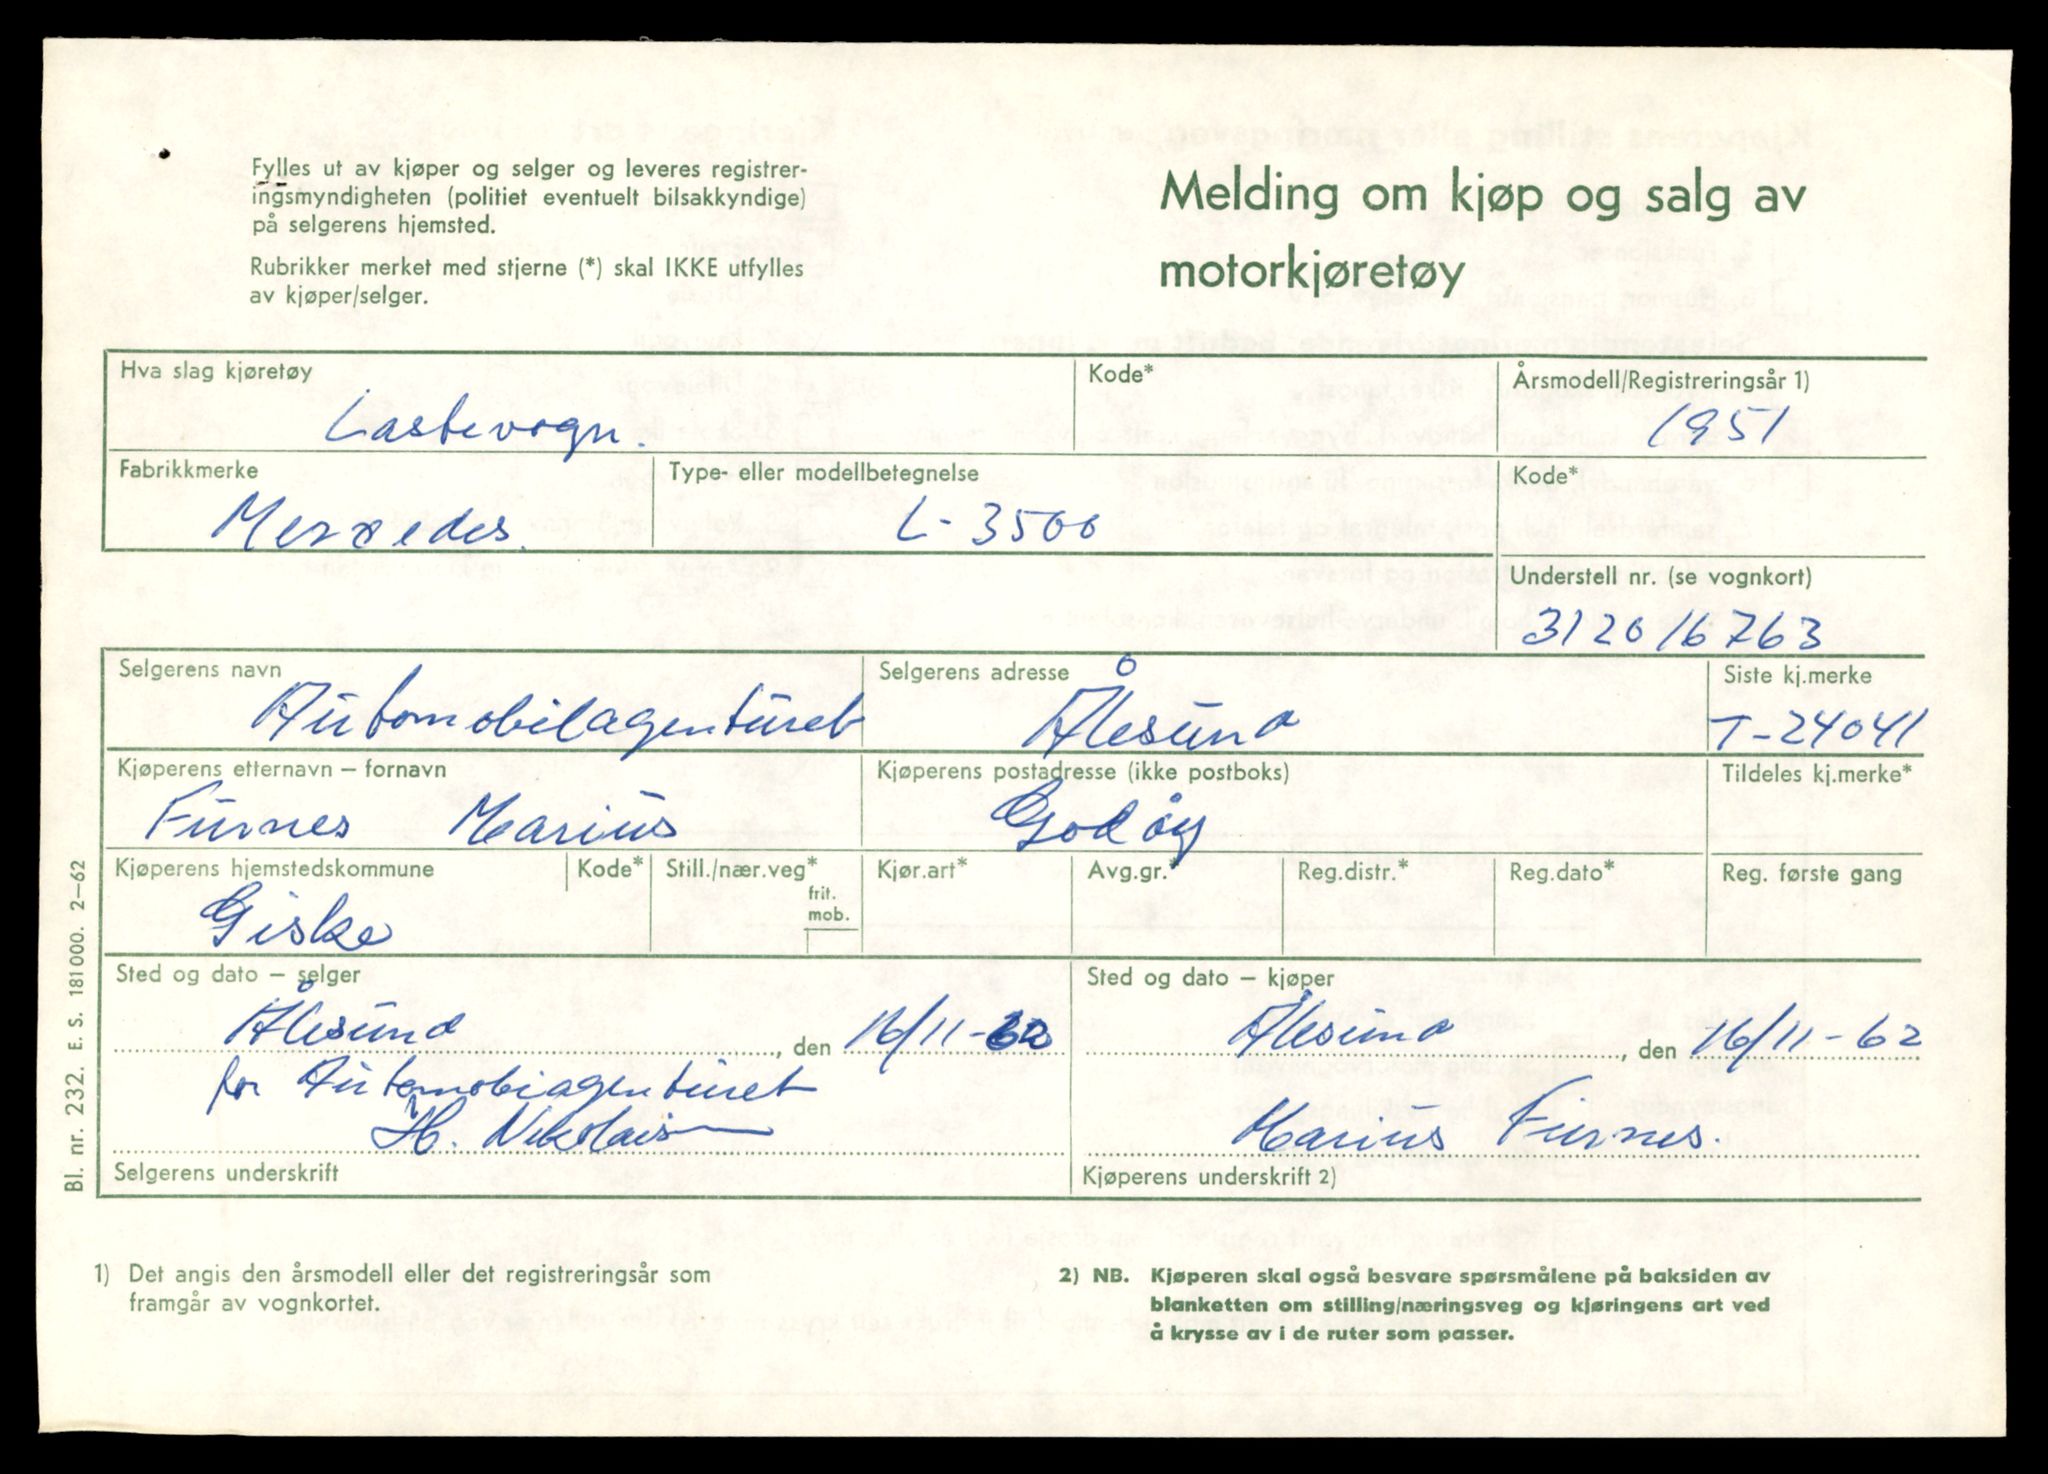 Fylles ut av kjøper og selger og leveres registrer-
ingsmyndigheten (politiet eventuelt bilsakkyndige)
på selgerens hjemsted.
Rubrikker merket med stjerne (*) skal IKKE utfylles
av kjøper/selger.
Melding om kjøp og salg av
motorkjøretøy
Hva slag kjøretøy Kode* Årsmodell/Registreringsår 1)
Lastevogn. 1951
Fabrikkmerke Type- eller modellbetegnelse Kode*
Mercedes. L-3500
Understell nr. (se vognkort)
312016763
Selgerens navn Selgerens adresse Siste kj.merke
Automobilagenturet Ålesund T-24041
Kjøperens etternavn – fornavn Kjøperens postadresse (ikke postboks) Tildeles kj.merke*
Furnes Marius Godøy
Kjøperens hjemstedskommune Kode* Still./nær.veg* Kjør.art* Avg.gr.* Reg.distr.* Reg.dato* Reg. første gang
frit.
mob.
Giske
Sted og dato – selger Sted og dato – kjøper
Ålesund, den 16/11-62 Ålesund, den 16/11-62
for Automobiagenturet
H. Nikolaisen Marius Furnes.
Selgerens underskrift Kjøperens underskrift 2)
Bl. nr. 232. E. S. 181000. 2–62
1) Det angis den årsmodell eller det registreringsår som
framgår av vognkortet.
2) NB. Kjøperen skal også besvare spørsmålene på baksiden av
blanketten om stilling/næringsveg og kjøringens art ved
å krysse av i de ruter som passer.